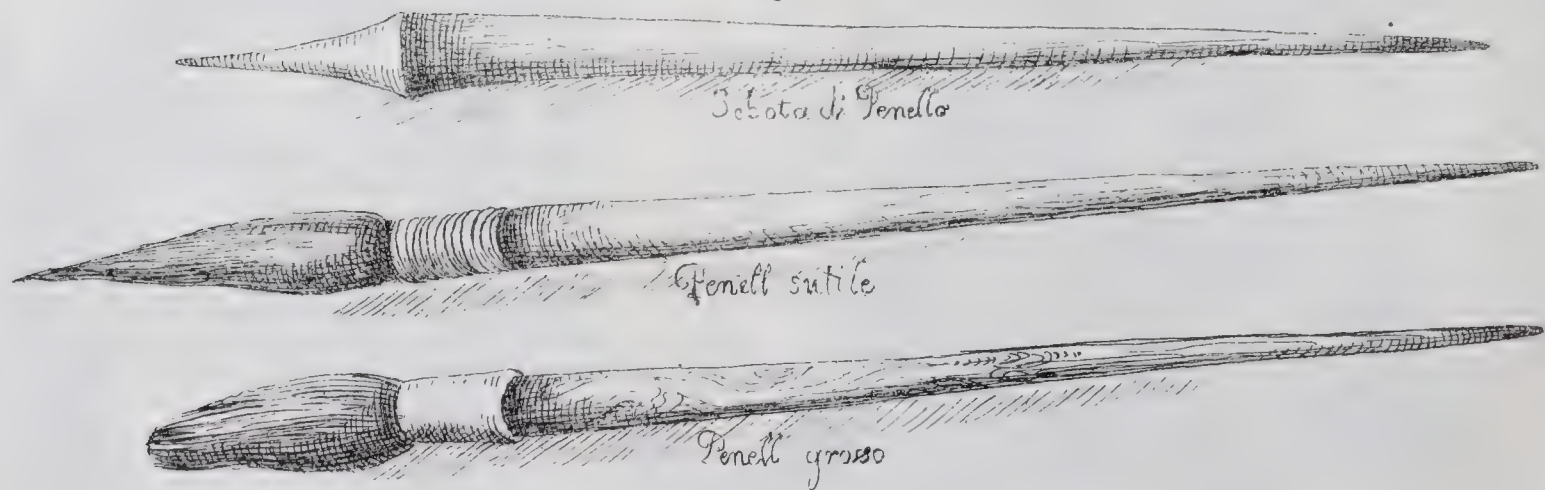 di Penello
Penell sutile
Penell grosso